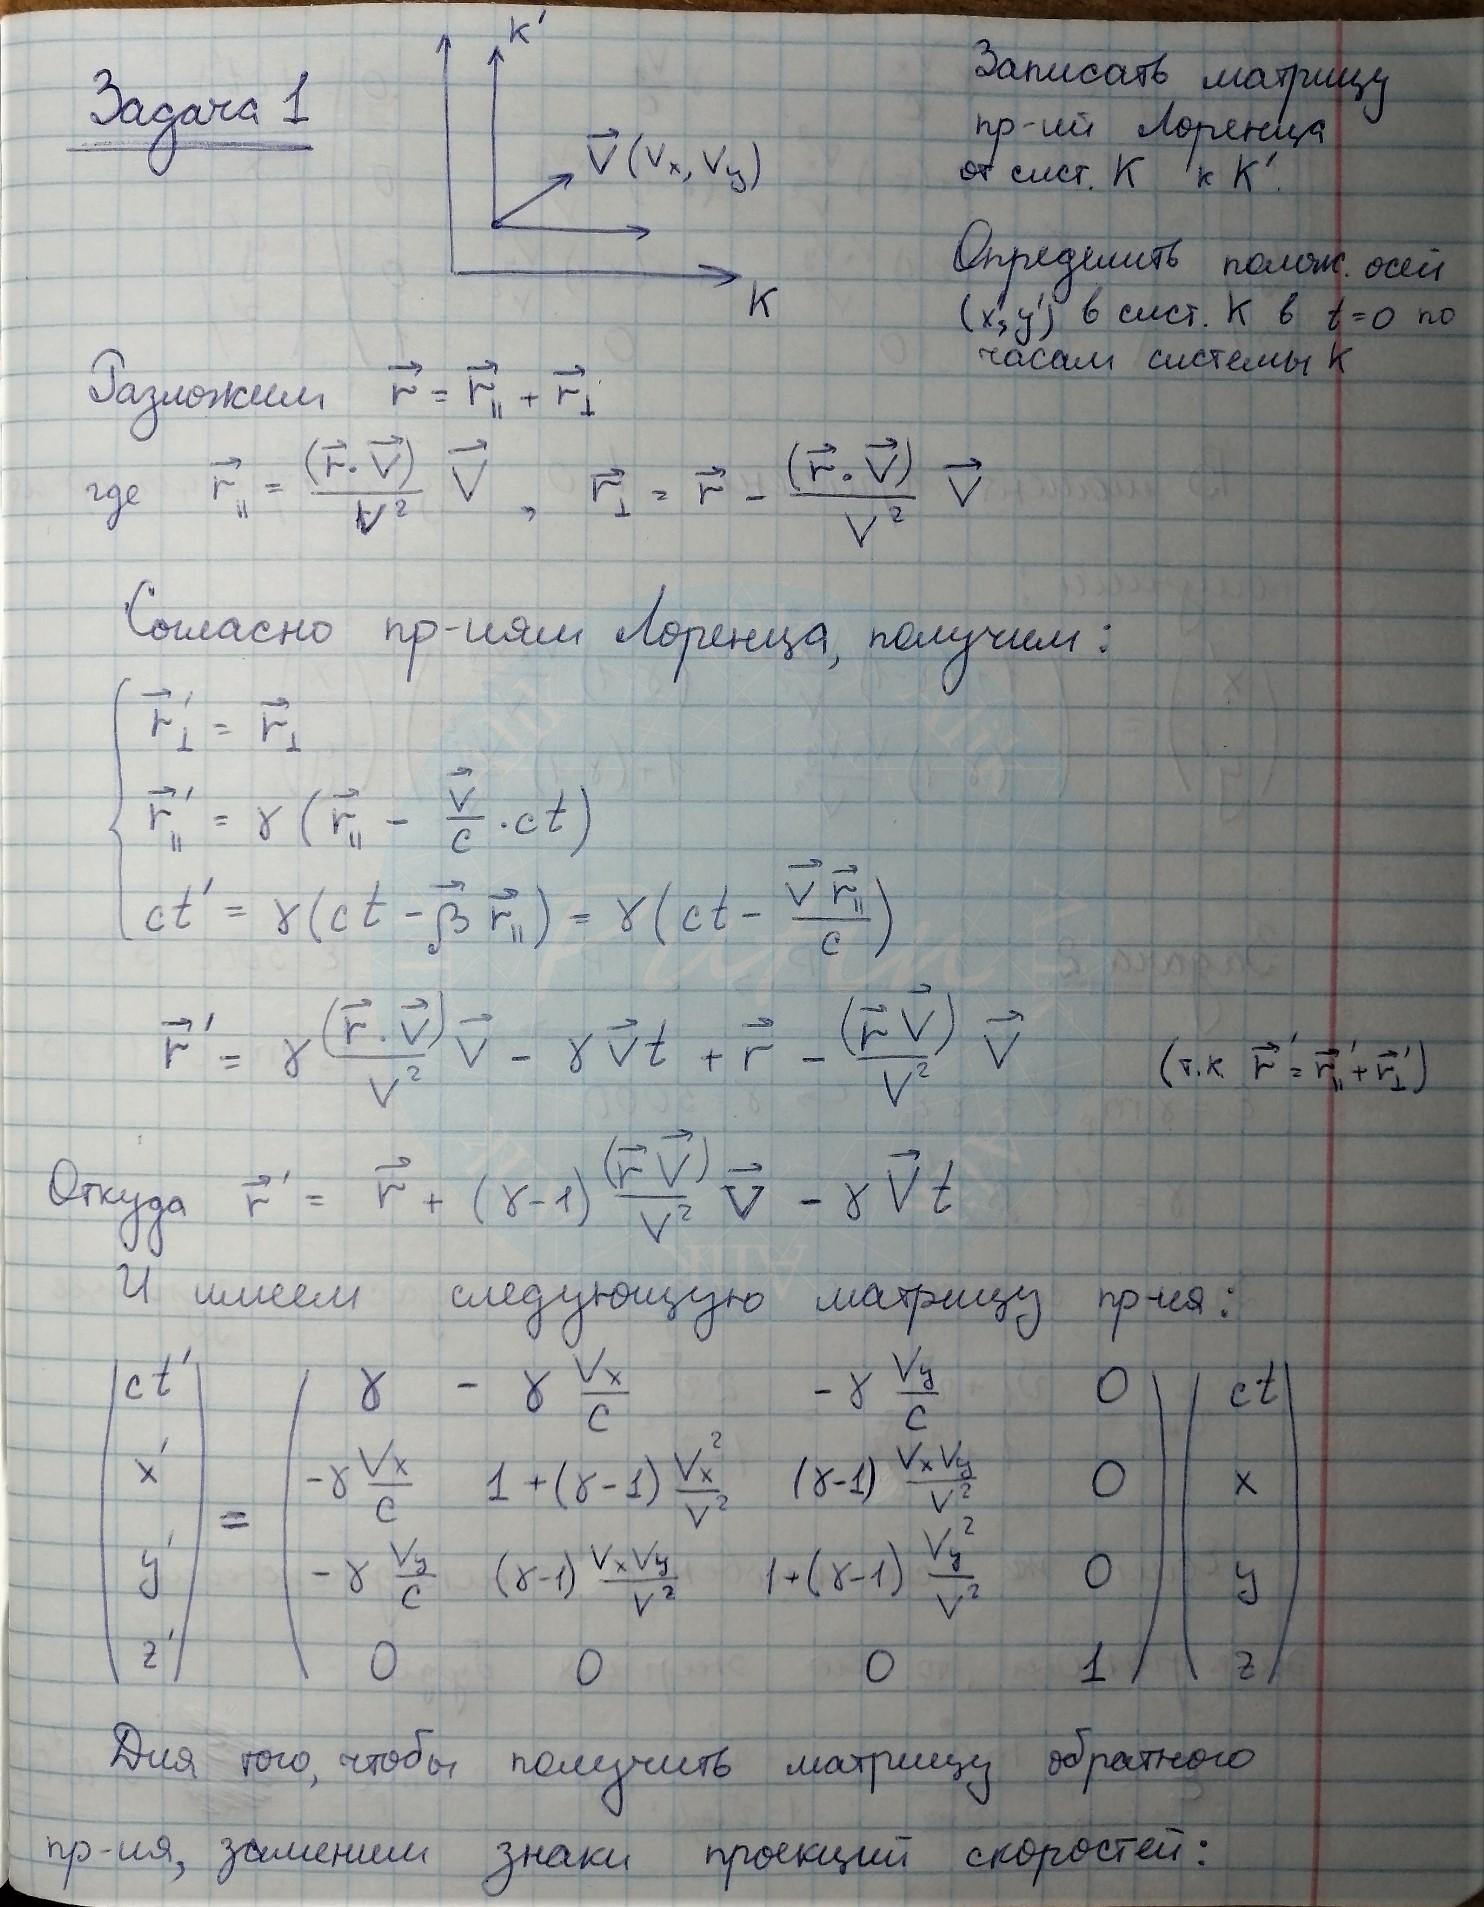 Задача 1
K'
V⃗ (Vx, Vy)
K
Записать матрицу
пр-ий Лоренца
от сист. K к K'.
Определить полож. осей
(x', y') в сист. K в t=0 по
часам системы K
Разложим r⃗ = r⃗∥ + r⃗⊥
где r⃗∥ = (r⃗·V⃗)/V² V⃗, r⃗⊥ = r⃗ - (r⃗·V⃗)/V² V⃗
Согласно пр-иям Лоренца, получим:
r⃗⊥' = r⃗⊥
r⃗∥' = γ(r⃗∥ - V⃗/c · ct)
ct' = γ(ct - β⃗ r⃗∥) = γ(ct - V⃗ r⃗∥/c)
r⃗' = γ (r⃗·V⃗)/V² V⃗ - γ V⃗ t + r⃗ - (r⃗ V⃗)/V² V⃗ (т.к r⃗' = r⃗∥' + r⃗⊥')
Откуда r⃗' = r⃗ + (γ-1) (r⃗ V⃗)/V² V⃗ - γ V⃗ t
И имеем следующую матрицу пр-ия:
ct' γ -γ Vx/c -γ Vy/c 0 ct
x' -γ Vx/c 1+(γ-1) Vx²/V² (γ-1) VxVy/V² 0 x
=
y' -γ Vy/c (γ-1) VxVy/V² 1+(γ-1) Vy²/V² 0 y
z' 0 0 0 1 z
Для того, чтобы получить матрицу обратного
пр-ия, заменим знаки проекций скоростей: